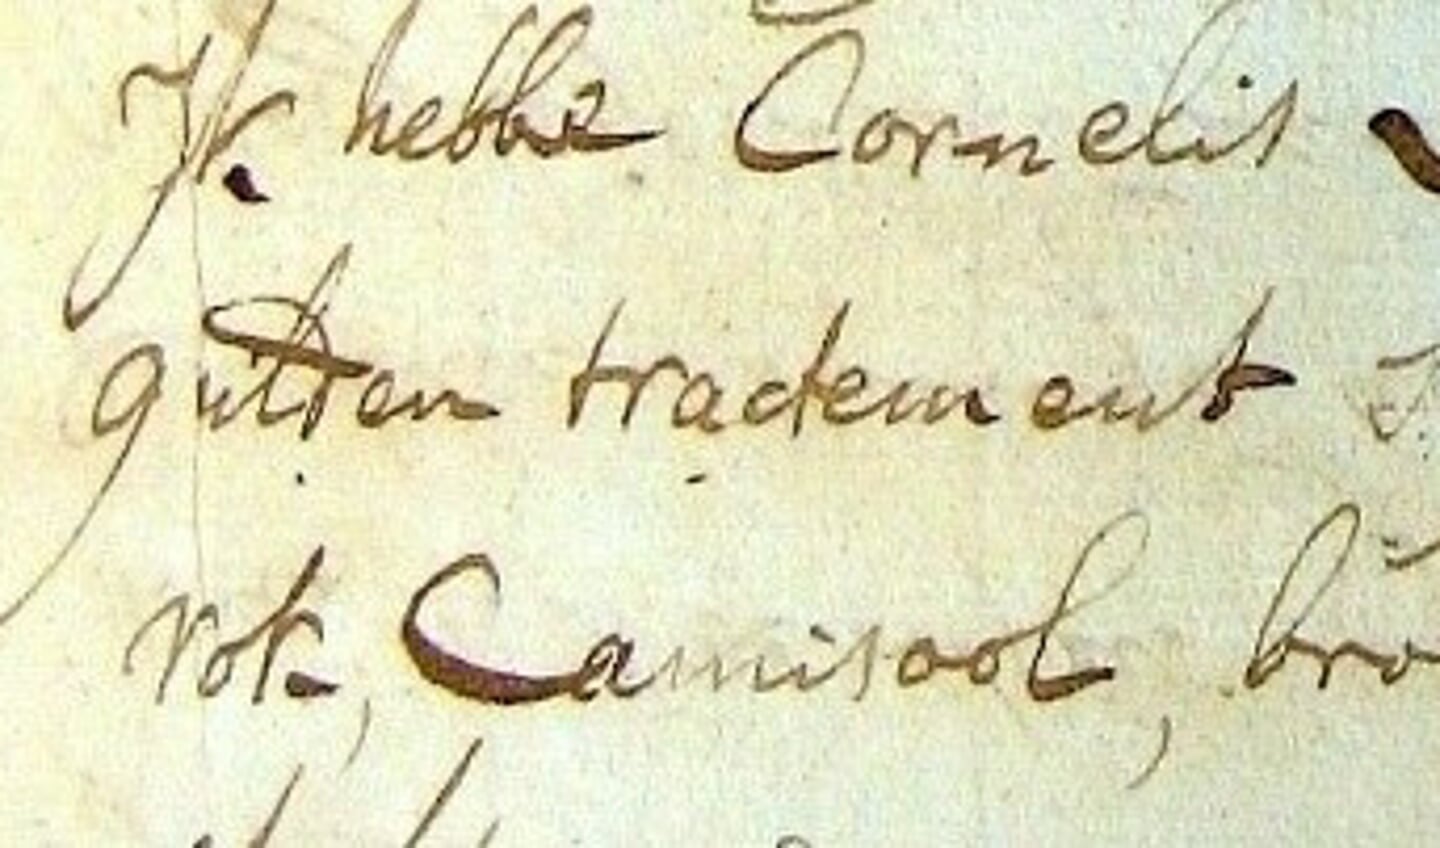 Ik hebbe Cornelis
gulden tradement
rok, Camisool, bro